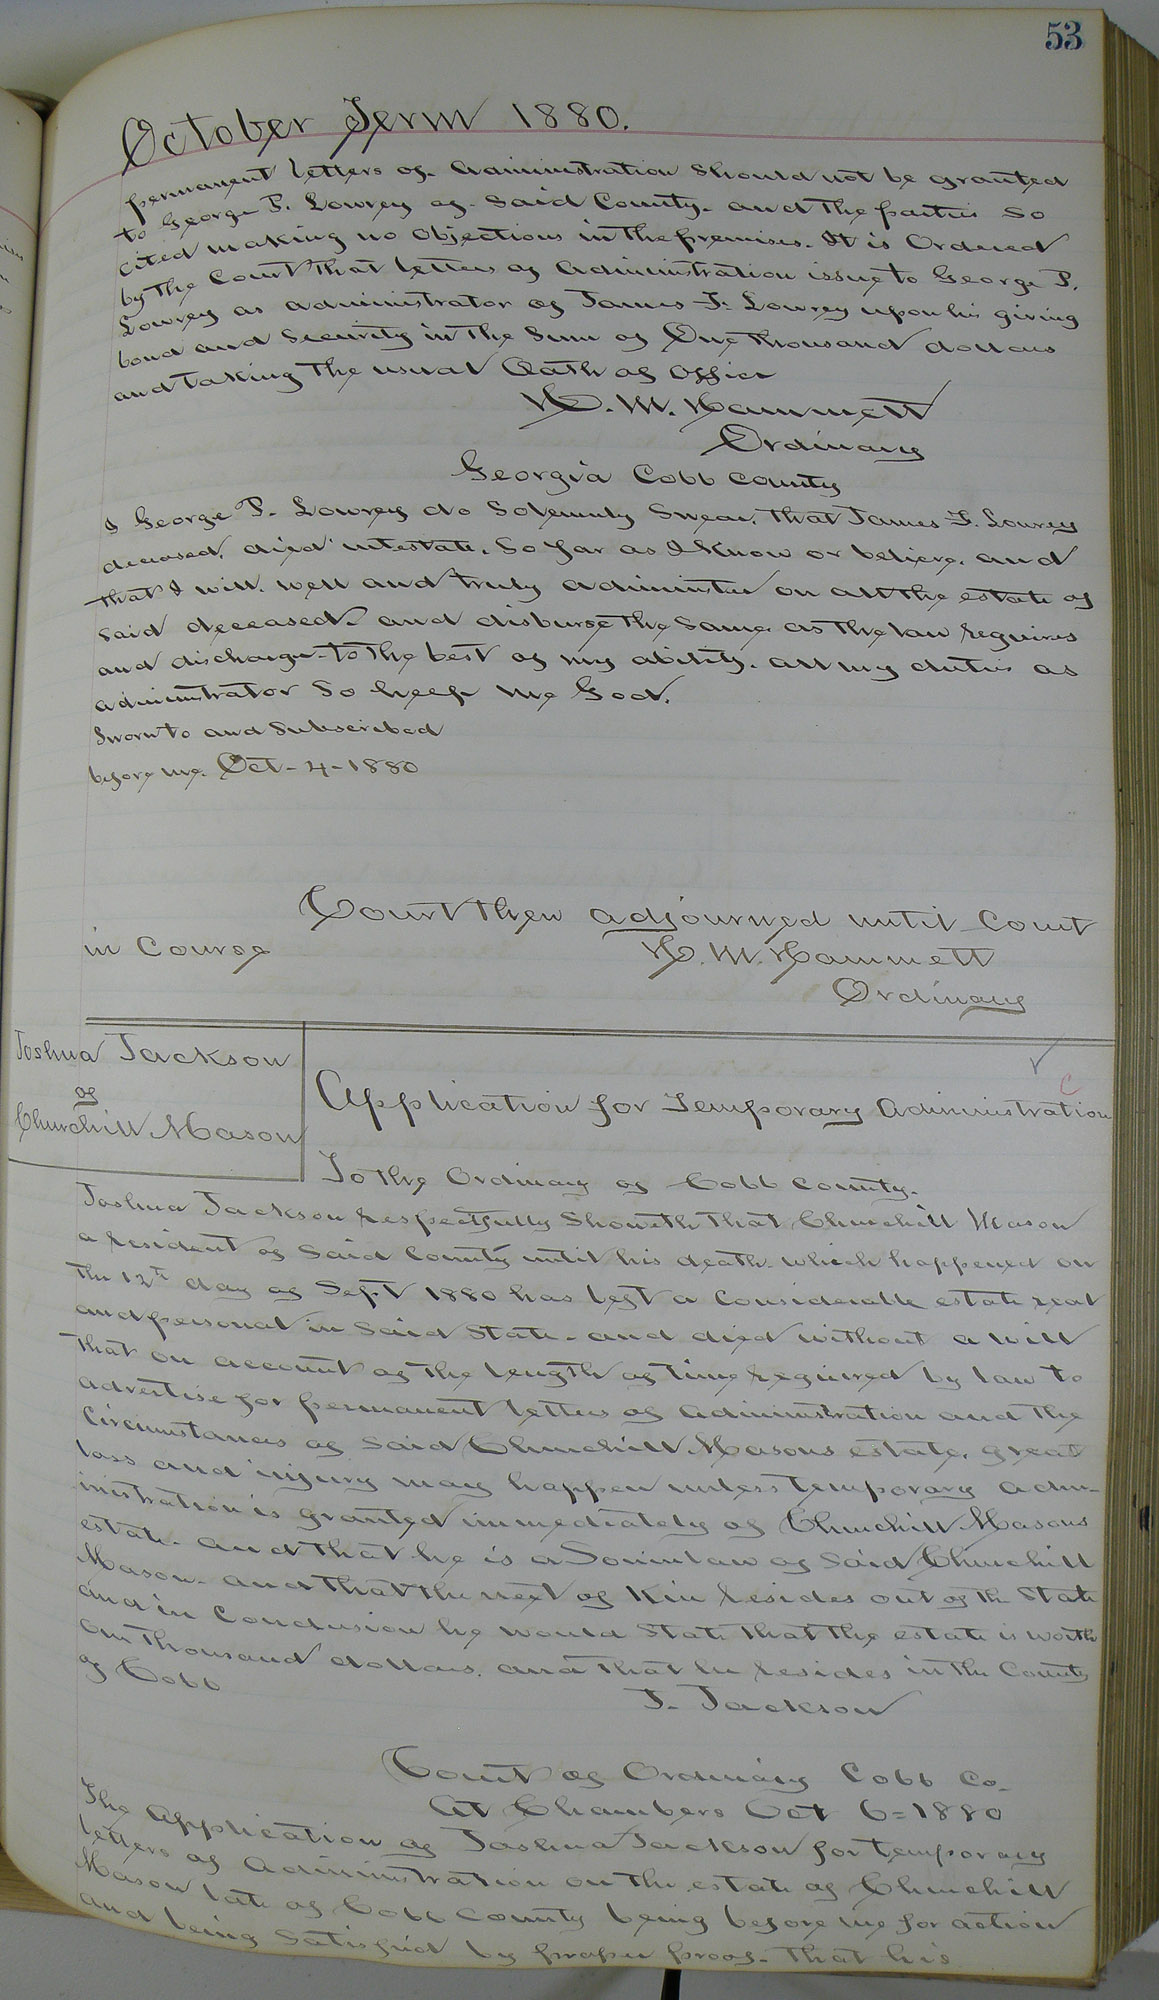 53
October Term 1880.
permanent letters of Administration should not be granted
to George P. Lowrey of said County. and the parties so
cited making no objections in the premises. It is Ordered
by the Court that letters of Administration issue to George P.
Lowrey as administrator of James F. Lowrey upon his giving
bond and security in the sum of One thousand dollars
and taking the usual Oath of office
H. M. Hammett
Ordinary
Georgia Cobb County
I George P. Lowrey do Solemnly Swear, that James F. Lowrey
deceased, died intestate, so far as I know or believe, and
that I will, well and truly administer on all the estate of
said deceased. and disburse the same as the law requires
and discharge to the best of my ability. all my duties as
administrator So help me God.
Sworn to and subscribed
before me. Oct-4-1880
Court then adjourned until Court
in Course
H. M. Hammett
Ordinary
Joshua Jackson
of
Churchill Mason
Application for Temporary Administration
To the Ordinary of Cobb County.
Joshua Jackson respectfully Showeth that Churchill Mason
a resident of said County until his death which happened on
the 12th day of Sept 1880 has left a considerable estate real
and personal in said State - and died without a will
That on account of the length of time required by law to
advertise for permanent letters of administration and the
Circumstances of said Churchill Masons estate, great
loss and injury may happen unless temporary adm-
inistration is granted immediately of Churchill Masons
estate. and that he is a Soninlaw of said Churchill
Mason. and that the next of Kin resides out of the State
and in conclusion he would state that the estate is worth
one thousand dollars. and that he resides in the County
of Cobb
J. Jackson
Court of Ordinary Cobb Co.
At Chambers Oct 6=1880
The Application of Joshua Jackson for temporary
letters of Administration on the estate of Churchill
Mason late of Cobb County being before me for action
and being Satisfied by proper proof. that his